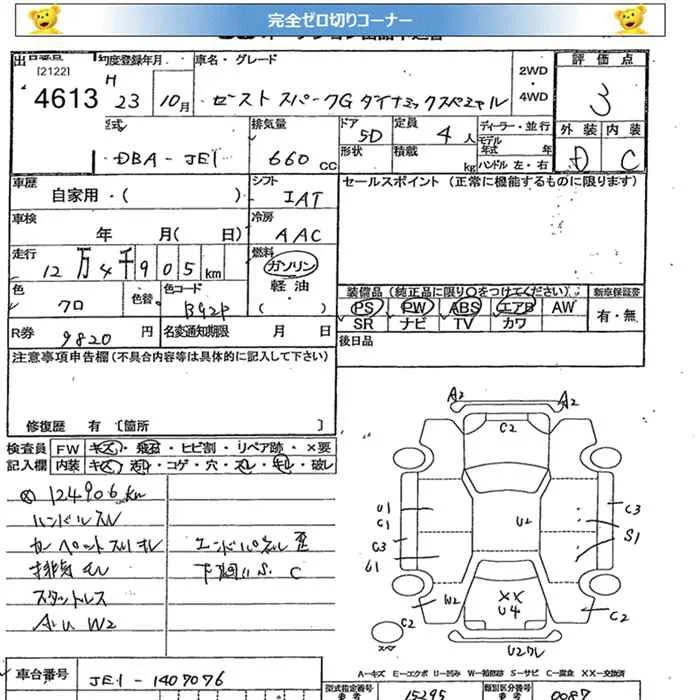 完全ゼロ切りコーナー
出
[2122]
4613
初度登録年月
H
23
10月
車名・グレード
ゼスト スパークG ダイナミックスペシャル
2WD
4WD
評価点
3
外装 内装
D C
型式
DBA - JE1
排気量
660 cc
ドア
5D
形状
定員
4人
積載
kg
ディーラー・並行
モデル
年式 年
ハンドル 左・右
車歴
自家用・( )
シフト
IAT
セールスポイント (正常に機能するものに限ります)
車検
年 月( 日)
冷房
AAC
走行
12万4千905km
燃料
ガソリン
軽油
( )
色
クロ
色替
色コード
B92P
装備品 (純正品に限り○をつけてください)
新車保証書
PS PW ABS エアB AW
有・無
SR ナビ TV カワ
R券
9820 円
名変通知期限 月 日
後日品
注意事項申告欄 (不具合内容等は具体的に記入して下さい)
修復歴 有 [箇所 ]
検査員
記入欄
FW キズ・飛石・ヒビ割・リペア跡・×要
内装 キズ・汚れ・コゲ・穴・スレ・キレ・破レ
124906 km
ハンドルスレ
カーペットスリキレ
排気モレ
スタットレス
AW W2
エンドパネル歪
下廻りS. C
A2
A2
C2
U1
C1
C3
U2
C3
S1
W2
××
U4
C2
C2
U2ワレ
A－キズ E－エクボ U－凹み W－補修跡 S－サビ C－腐食 XX－交換済
車台番号
JE1 - 1407076
型式指定番号
参考
15295
類別区分番号
参考
0087